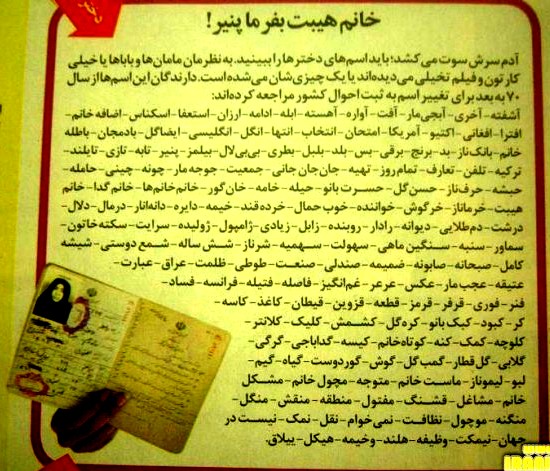 دختر
خانم هیبت بفرما پنیر!
آدم سرش سوت می‌کشد؛ باید اسم‌های دخترها را ببینید. به نظرمان مامان‌ها و باباها یا خیلی
کارتون و فیلم تخیلی می‌دیده‌اند یا یک چیزی‌شان می‌شده است. دارندگان این اسم‌ها از سال
۷۰ به بعد برای تغییر اسم به ثبت احوال کشور مراجعه کرده‌اند:
آشفته- آخری- آبجی‌مار- آفت- آواره- آهسته- ابله- ادامه- ارزان- استعفا- اسکناس- اضافه‌خانم-
افترا- افغانی- اکتیو- آمریکا- امتحان- انتخاب- انتها- انگل- انگلیسی- ایضاگل- بادمجان- باطله
خانم- بانک‌ناز- بد- برنج- برقی- بس- بلد- بلبل- بطری- بی‌بی‌لال- بیلمز- پنیر- تابه- تازی- تابلند-
ترکیه- تلفن- تعارف- تمام‌روز- تهیه- جان‌جان‌جانی- جمعیت- جوجه‌مار- چونه- چینی- حامله-
حبشه- حرف‌ناز- حسن‌گل- حسرت‌بانو- حیله- خامه- خان‌گور- خانم‌خانم‌ها- خانم‌گدا- خانم
هیبت- خرماناز- خرگوش- خواننده- خوب‌حمال- خرده‌قند- خیمه- دایره- دانه‌انار- درمال- دلال-
درشت- دم‌طلایی- دیوانه- رادار- روبنده- زابل- زیادی- ژامپول- ژولیده- سرایت- سکته‌خاتون-
سماور- سنبه- سنگین‌ماهی- سهولت- سهمیه- شرناز- شش‌ساله- شمع‌دوستی- شیشه
کامل- صبحانه- صابونه- ضمیمه- صندلی- صنعت- طوطی- ظلمت- عراق- عبارت-
عتیقه- عجب‌مار- عکس- عرعر- غم‌انگیز- فاصله- فتیله- فرانسه- فساد-
فنر- فوری- قرقر- قرمز- قطعه- قزوین- قیطان- کاغذ- کاسه-
کر- کبود- کیک‌بانو- کره‌گل- کشمش- کلیک- کلانتر-
کلوچه- کمک- کنه- کوتاه‌خانم- کیسه- گداباجی- گرگی-
گلابی- گل‌قطار- گمب‌گل- گوش- گوردوست- گیاه- گیم-
لبو- لیموناز- ماست‌خانم- متوجه- مچول‌خانم- مشکل
خانم- مشاغل- قشنگ- مفتول- منطقه- منقش- منگل-
منگنه- موچول- نظافت- نمی‌خوام- نقل- نمک- نیست‌در
جهان- نیمکت- وظیفه- هلند- وخیمه- هیکل- ییلاق.